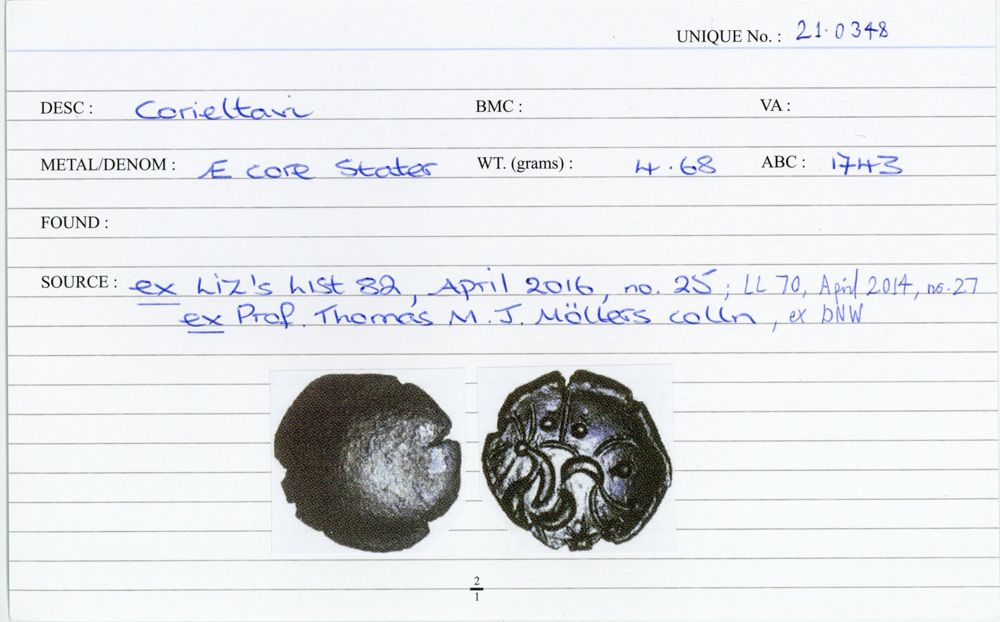 UNIQUE No. : 21.0348
DESC : Corieltavi BMC : VA :
METAL/DENOM : Æ core Stater WT. (grams) : 4.68 ABC : 1743
FOUND :
SOURCE : ex Liz's List 82, April 2016, no. 25; LL 70, April 2014, no. 27
ex Prof. Thomas M. J. Möllers colln, ex DNW
2
1